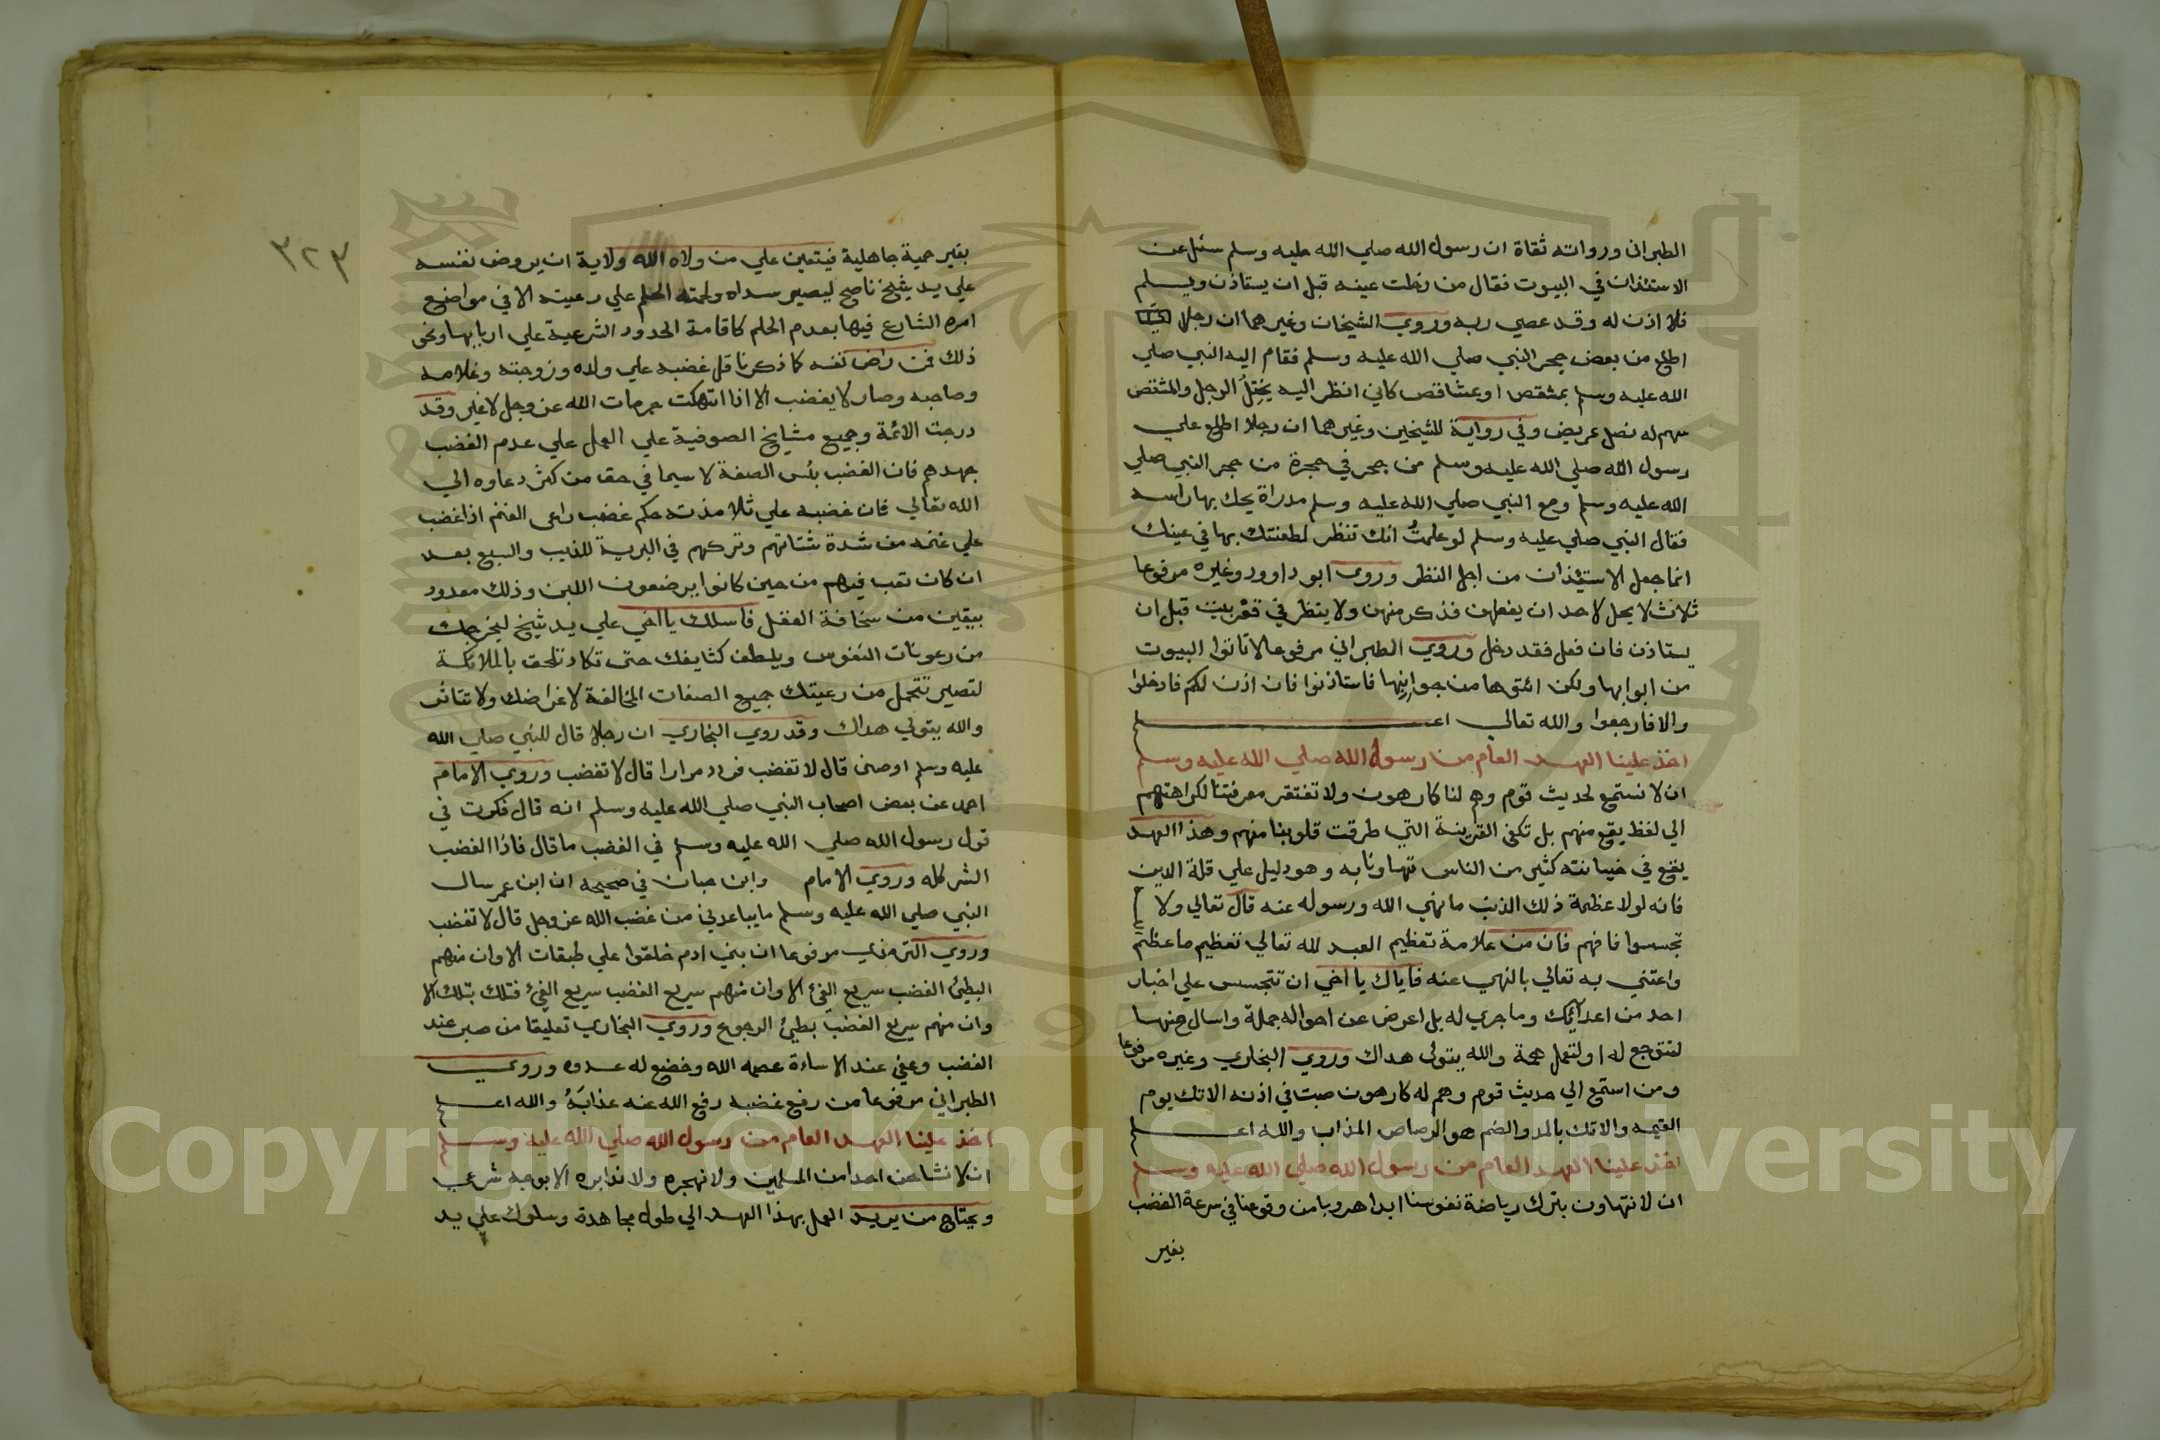 الطبراني ورواته ثقاة ان رسول الله صلي الله عليه وسلم سئل عن
الاستئذان في البيوت فقال من دخلت عينه قبل ان يستاذن ويسلم
فلا اذن له وقد عصي ربه وروي الشيخان وغيرهما ان رجلا
اطلع من بعض حجر النبي صلي الله عليه وسلم فقام اليه النبي صلي
الله عليه وسلم بمشقص او بمشاقص كاني انظر اليه يختِلُ الرجل والمشقص
سهم له نصل عريض وفي رواية للشيخين وغيرهما ان رجلا اطلع علي
رسول الله صلي الله عليه وسلم من جحر في حجرة من حجر النبي صلي
الله عليه وسلم ومع النبي صلي الله عليه وسلم مدراة يحك بها راسه
فقال النبي صلي عليه وسلم لو علمتُ انك تنظر لطعنتك بها في عينك
انما جعل الاستيذان من اجل النظر وروي ابو داوود وغيره مرفوعا
ثلاث لا يحل لاحد ان يفعلهن فذكر منهن ولا ينظر في قعر بيت قبل ان
يستاذن فان فعل فقد دخل وروي الطبراني مرفوعا لا تاتوا البيوت
من ابوابها ولكن ائتوها من جوانبها فاستاذنوا فان اذن لكم فادخلوا
والا فارجعوا والله تعالي اعلم
اخذ علينا العهد العام من رسول الله صلي الله عليه وسلم
ان لا نستمع لحديث قوم وهم لنا كارهون ولا تفتقر معرفتنا لكراهتهم
الي لفظ يقع منهم بل تكفي القرينة التي طرقت قلوبنا منهم وهذا العهد
يقع في خيانته كثير من الناس تهاونا به وهو دليل علي قلة الدين
فانه لولا عظمة ذلك الذنب ما نهي الله ورسوله عنه قال تعالي ولا
تجسسوا فافهم فان من علامة تعظيم العبد لله تعالي تعظيم ما عظم
واعتني به تعالي بالنهي عنه فاياك يا اخي ان تتجسس علي اخبار
احد من اعدآئك وما جري له بل اعرض عن احواله جملة واسال عنها
لتتوجع له او لتعمل همة والله يتولي هداك وروي البخاري وغيره مرفوعا
ومن استمع الي حديث قوم وهم له كارهون صبت في اذنه الانك يوم
القيمه والانك بالمد والضم هو الرصاص المذاب والله اعلم
اخذ علينا العهد العام من رسول الله صلي الله عليه وسلم
ان لا نتهاون بترك رياضة نفوسنا ابدا هروبا من وقوعنا في سرعة الغضب
بغير
٣٢٣
بغير حمية جاهلية فيتعين علي من ولاه الله ولاية ان يروض نفسه
علي يد شيخ ناصح ليصير سداه ولحمته الحلم علي رعيته الا في مواضع
امره الشارع فيها بعدم الحلم كاقامة الحدود الشرعية علي اربابها ونحو
ذلك فمن راض نفسه كما ذكرنا قل غضبه علي ولده وزوجته وغلامه
وصاحبه وصار لا يغضب الا اذا انتهكت حرمات الله عز وجل لا غير وقد
درجت الائمة وجميع مشايخ الصوفية علي العمل علي عدم الغضب
جهدهم فان الغضب بئس الصفة لا سيما في حق من كثر دعاوه الي
الله تعالي فان غضبه علي تلامذته حكم غضب راعي الغنم اذا غضب
علي غنمه من شدة شتاتهم وتركهم في البرية للذيب والسبع بعد
ان كان تعب فيهم من حين كانوا يرضعون اللبن وذلك معدود
بيقين من سخافة العقل فاسلك يا اخي علي يد شيخ ليخرجك
من رعونات النفوس ويلطف كثايفك حتي تكاد تلحق بالملائكة
لتصير تتحمل من رعيتك جميع الصفات المخالفة لاغراضك ولا تتاثر
والله يتولي هداك وقد روي البخاري ان رجلا قال للنبي صلي الله
عليه وسلم اوصني قال لا تغضب فردد مرارا قال لا تغضب وروي الامام
احمد عن بعض اصحاب النبي صلي الله عليه وسلم انه قال فكرت في
قول رسول الله صلي الله عليه وسلم في الغضب ما قال فاذا الغضب
الشر كله وروي الامام وابن حبان في صحيحه ان ابن عمر سال
النبي صلي الله عليه وسلم ما يباعدني من غضب الله عز وجل قال لا تغضب
وروي الترمذي مرفوعا ان بني ادم خلقوا علي طبقات الا وان منهم
البطئ الغضب سريع الفئ الا وان منهم سريع الغضب سريع الفئ فتلك بتلك الا
وان منهم سريع الغضب بطئ الرجوع وروي البخاري تعليقا من صبر عند
الغضب وعفي عند الاساءة عصمه الله وخضع له عدوه وروي
الطبراني مرفوعا من رفع غضبه رفع الله عنه عذابَهُ والله اعلم
اخذ علينا العهد العام من رسول الله صلي الله عليه وسلم
ان لا نشاحن احدا من المسلمين ولا نهجره ولا ندابره الا بوجه شرعي
ويحتاج من يريد العمل بهذا العهد الي طول مجاهدة وسلوك علي يد
Copyright © King Saud University